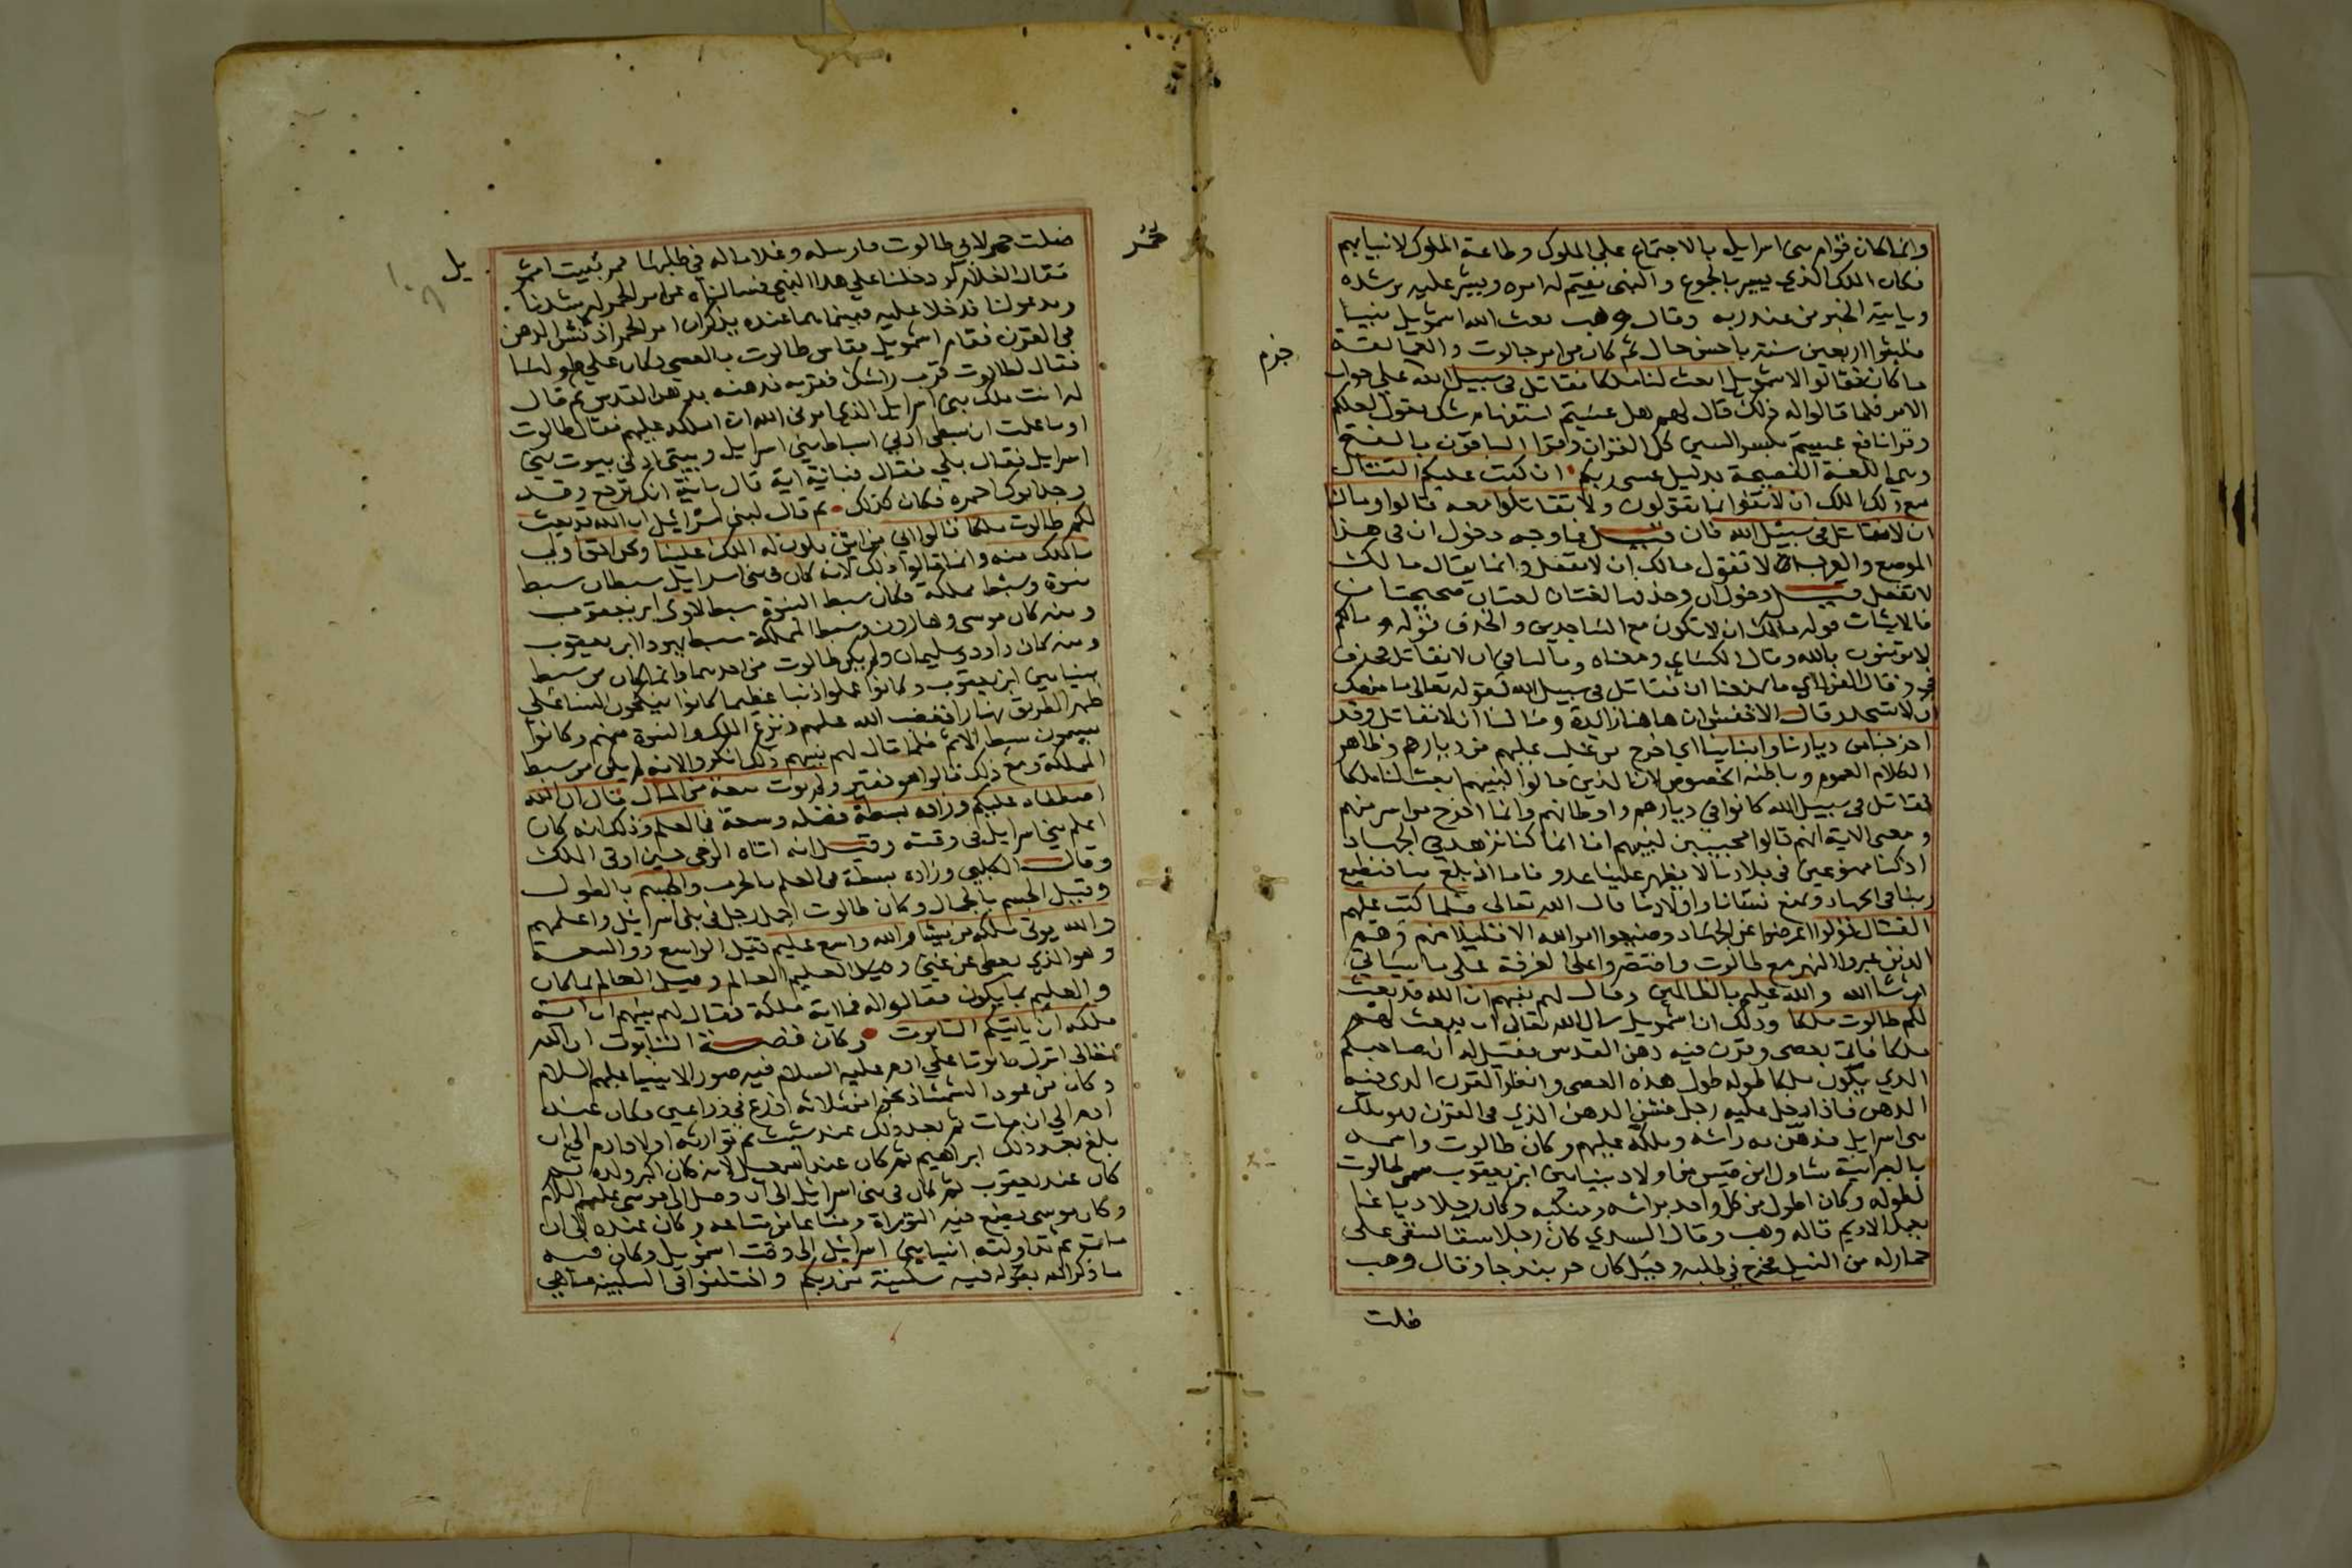 وانما كان قوام بنى اسرايل بالاجتماع على الملوك وطاعة الملوك لانبيايهم
فكان الملك الذي يسير بالجموع والنبى يقيم له امره ويشير عليه برشده
وياتيه الخبر من عند ربه وقال وهب بعث الله اشمويل نبيا
فلبثوا اربعين سنة باحسن حال ثم كان من امر جالوت والعمالقة
ما كان فقالوا لاشمويل ابعث لنا ملكا نقاتل في سبيل الله على جواب
جزم
الامر فلما قالوا له ذلك قال لهم هل عسيتم استفهام شك يقول لعلكم
وقرا نافع عسيتم بكسر السين كل القران وقرا الباقون بالفتح
وهي اللغة الفصيحة بدليل عسى ربكم ان كتب عليكم القتال
مع ذلك الملك ان لا تفوا بما تقولون ولا تقاتلوا معه قالوا وما لنا
ان لا نقاتل في سبيل الله فان قيل فما وجه دخول ان في هذا
الموضع والعرب لا تقول مالك ان لا تفعل وانما يقال مالك
لا تفعل قيل دخول ان وحذفها لغتان صحيحتان
فالاثبات قوله مالك ان لا تكون مع الساجدين والحذف قوله وما لكم
لا تومنون بالله وقال الكساي ومعناه وما لنا في ان لا نقاتل فحذف
في وقال الفراء اي ما يمنعنا ان نقاتل في سبيل الله لقوله تعالى ما منعك
ان لا تسجد وقال الاخفش ان هاهنا زايدة وما لنا ان لا نقاتل وقد
اخرجنا من ديارنا وابناينا اي اخرج من غلب عليهم من ديارهم وظاهر
الكلام العموم وباطنه الخصوص لان الذين قالوا لنبيهم ابعث لنا ملكا
نقاتل في سبيل الله كانوا في ديارهم واوطانهم وانما اخرج من اسر منهم
ومعنى الاية انهم قالوا مجيبين لنبيهم انا انما كنا نزهد في الجهاد
اذ كنا ممنوعين في بلادنا لا يظهر علينا عدونا فاما اذ بلغ منا فنطيع
ربنا في الجهاد ونمنع نسانا واولادنا قال الله تعالى فلما كتب عليهم
القتال تولوا اعرضوا عن الجهاد وضيعوا امر الله الا قليلا منهم وهم
الذين عبروا النهر مع طالوت واقتصروا على الغرفة على ما سياتي
ان شا الله والله عليم بالظالمين وقال لهم نبيهم ان الله قد بعث
لكم طالوت ملكا وذلك ان اشمويل سال الله تعالى ان يبعث لهم
ملكا فاتى بعصى وقرن فيه دهن القدس فقيل له ان صاحبكم
الذي يكون ملكا طوله طول هذه العصى وانظر القرن الذي فيه
الدهن فاذا دخل عليه رجل فنش الدهن الذي في القرن فهو ملك
بنى اسرايل فدهن به راسه وملكه عليهم وكان طالوت واسمه
بالعبرانية شاول ابن قيس من اولاد بنيامين ابن يعقوب سمى طالوت
لطوله وكان اطول من كل واحد براسه ومنكبه وكان رجلا دباغا
يعمل الاديم قاله وهب وقال السدي كان رجلا سقا يسقى على
حمار له من النيل فخرج في طلبه وقيل كان خربندجا وقال وهب
ضلت
ضلت حمر لابي طالوت فارسله وغلاما له في طلبها فمر ببيت اشمو
يل
فقال الغلام لو دخلنا على هذا النبي فسالناه عن امر الحمر ليرشدنا
ويدعو لنا فدخلا عليه فبينما هما عنده يذكران امر الحمر اذ نش الدهن
في القرن فقام اشمويل فقاس طالوت بالعصى فكان على طولها
فقال لطالوت قرب راسك فقربه فدهنه بدهن القدس ثم قال
له انت ملك بنى اسرايل الذي امرنى الله ان املكه عليهم فقال طالوت
اوما علمت ان سبطي ادنى اسباط بني اسرايل وبيتي ادنى بيوت بني
اسرايل فقال بلى فقال فباية اية قال باية انك ترجع وقد
وجد ابوك حمره فكان كذلك ثم قال لبنى اسرائيل ان الله قد بعث
لكم طالوت ملكا قالوا انى من اين يكون له الملك علينا ونحن احق اولى
بالملك منه وانما قالوا ذلك لانه كان في بنى اسرايل سبطان سبط
نبوة وسبط مملكة فكان سبط النبوة سبط لاوى ابن يعقوب
ومنه كان موسى وهارون وسبط المملكة سبط يهودا ابن يعقوب
ومنه كان داود وسليمان ولم يكن طالوت من احدهما وانما كان من سبط
بنيامين ابن يعقوب وكانوا عملوا ذنبا عظيما كانوا ينكحون النسا على
ظهر الطريق نهارا فغضب الله عليهم ونزع الملك والنبوة منهم وكانوا
يسمون سبط الاثم فلما قال لهم نبيهم ذلك انكروا لانه لم يكن من سبط
المملكة ومع ذلك قالوا هو فقير ولم يوت سعة من المال قال ان الله
اصطفاه عليكم وزاده بسطة فضله وسعة في العلم وذلك انه كان
اعلم بني اسرايل في وقته وقيل انه اتاه الوحي حين اوتى الملك
وقال الكلبي وزاده بسطة في العلم بالحرب والجسم بالطول
وقيل الجسم بالجمال وكان طالوت اجمل رجل في بني اسرائيل واعلمهم
والله يوتى ملكه من يشا والله واسع عليم قيل الواسع ذو السعة
وهو الذي يعطى عن غنى وقيل العليم العالم وقيل العالم بما كان
والعليم بما يكون فقالوا له فما اية ملكه فقال لهم نبيهم ان اية
ملكه ان ياتيكم التابوت وكان قصة التابوت ان الله
تعالى انزل تابوتا على ادم عليه السلام فيه صور الانبيا عليهم السلام
وكان من عود الشمشاذ نحوا من ثلاثه اذرع في ذراعين فكان عند
ادم الى ان مات ثم بعد ذلك عند شيث ثم توارثه اولاد ادم الى ان
بلغ بعد ذلك ابراهيم ثم كان عند اسمعيل لانه كان اكبر ولده ثم
كان عند يعقوب ثم كان في بنى اسرائيل الى ان وصل الى موسى عليهم السلام
وكان موسى يضع فيه التوراة ومتاعا من متاعه وكان عنده الى ان
مات ثم تداولته انبيا بنى اسرائيل الى وقت اشمويل وكان فيه
ما ذكر الله بقوله فيه سكينة من ربكم واختلفوا في السكينة ما هي